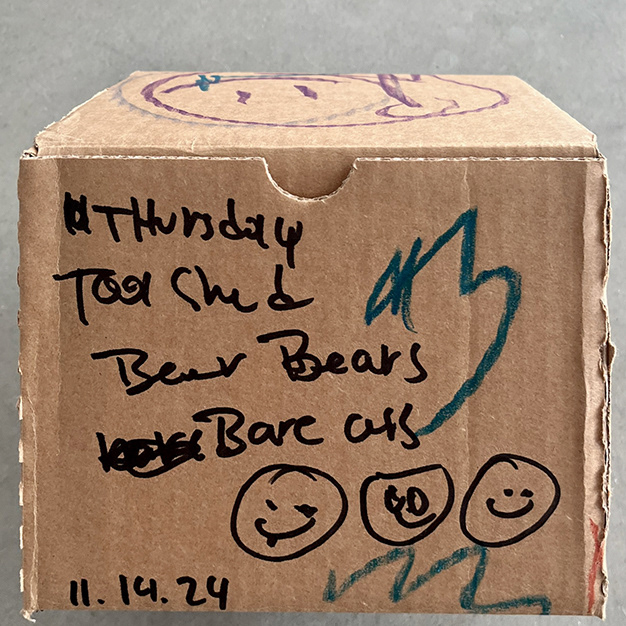 Thursday
Tool Shed
Bear Bears
Bare ass
11.14.24